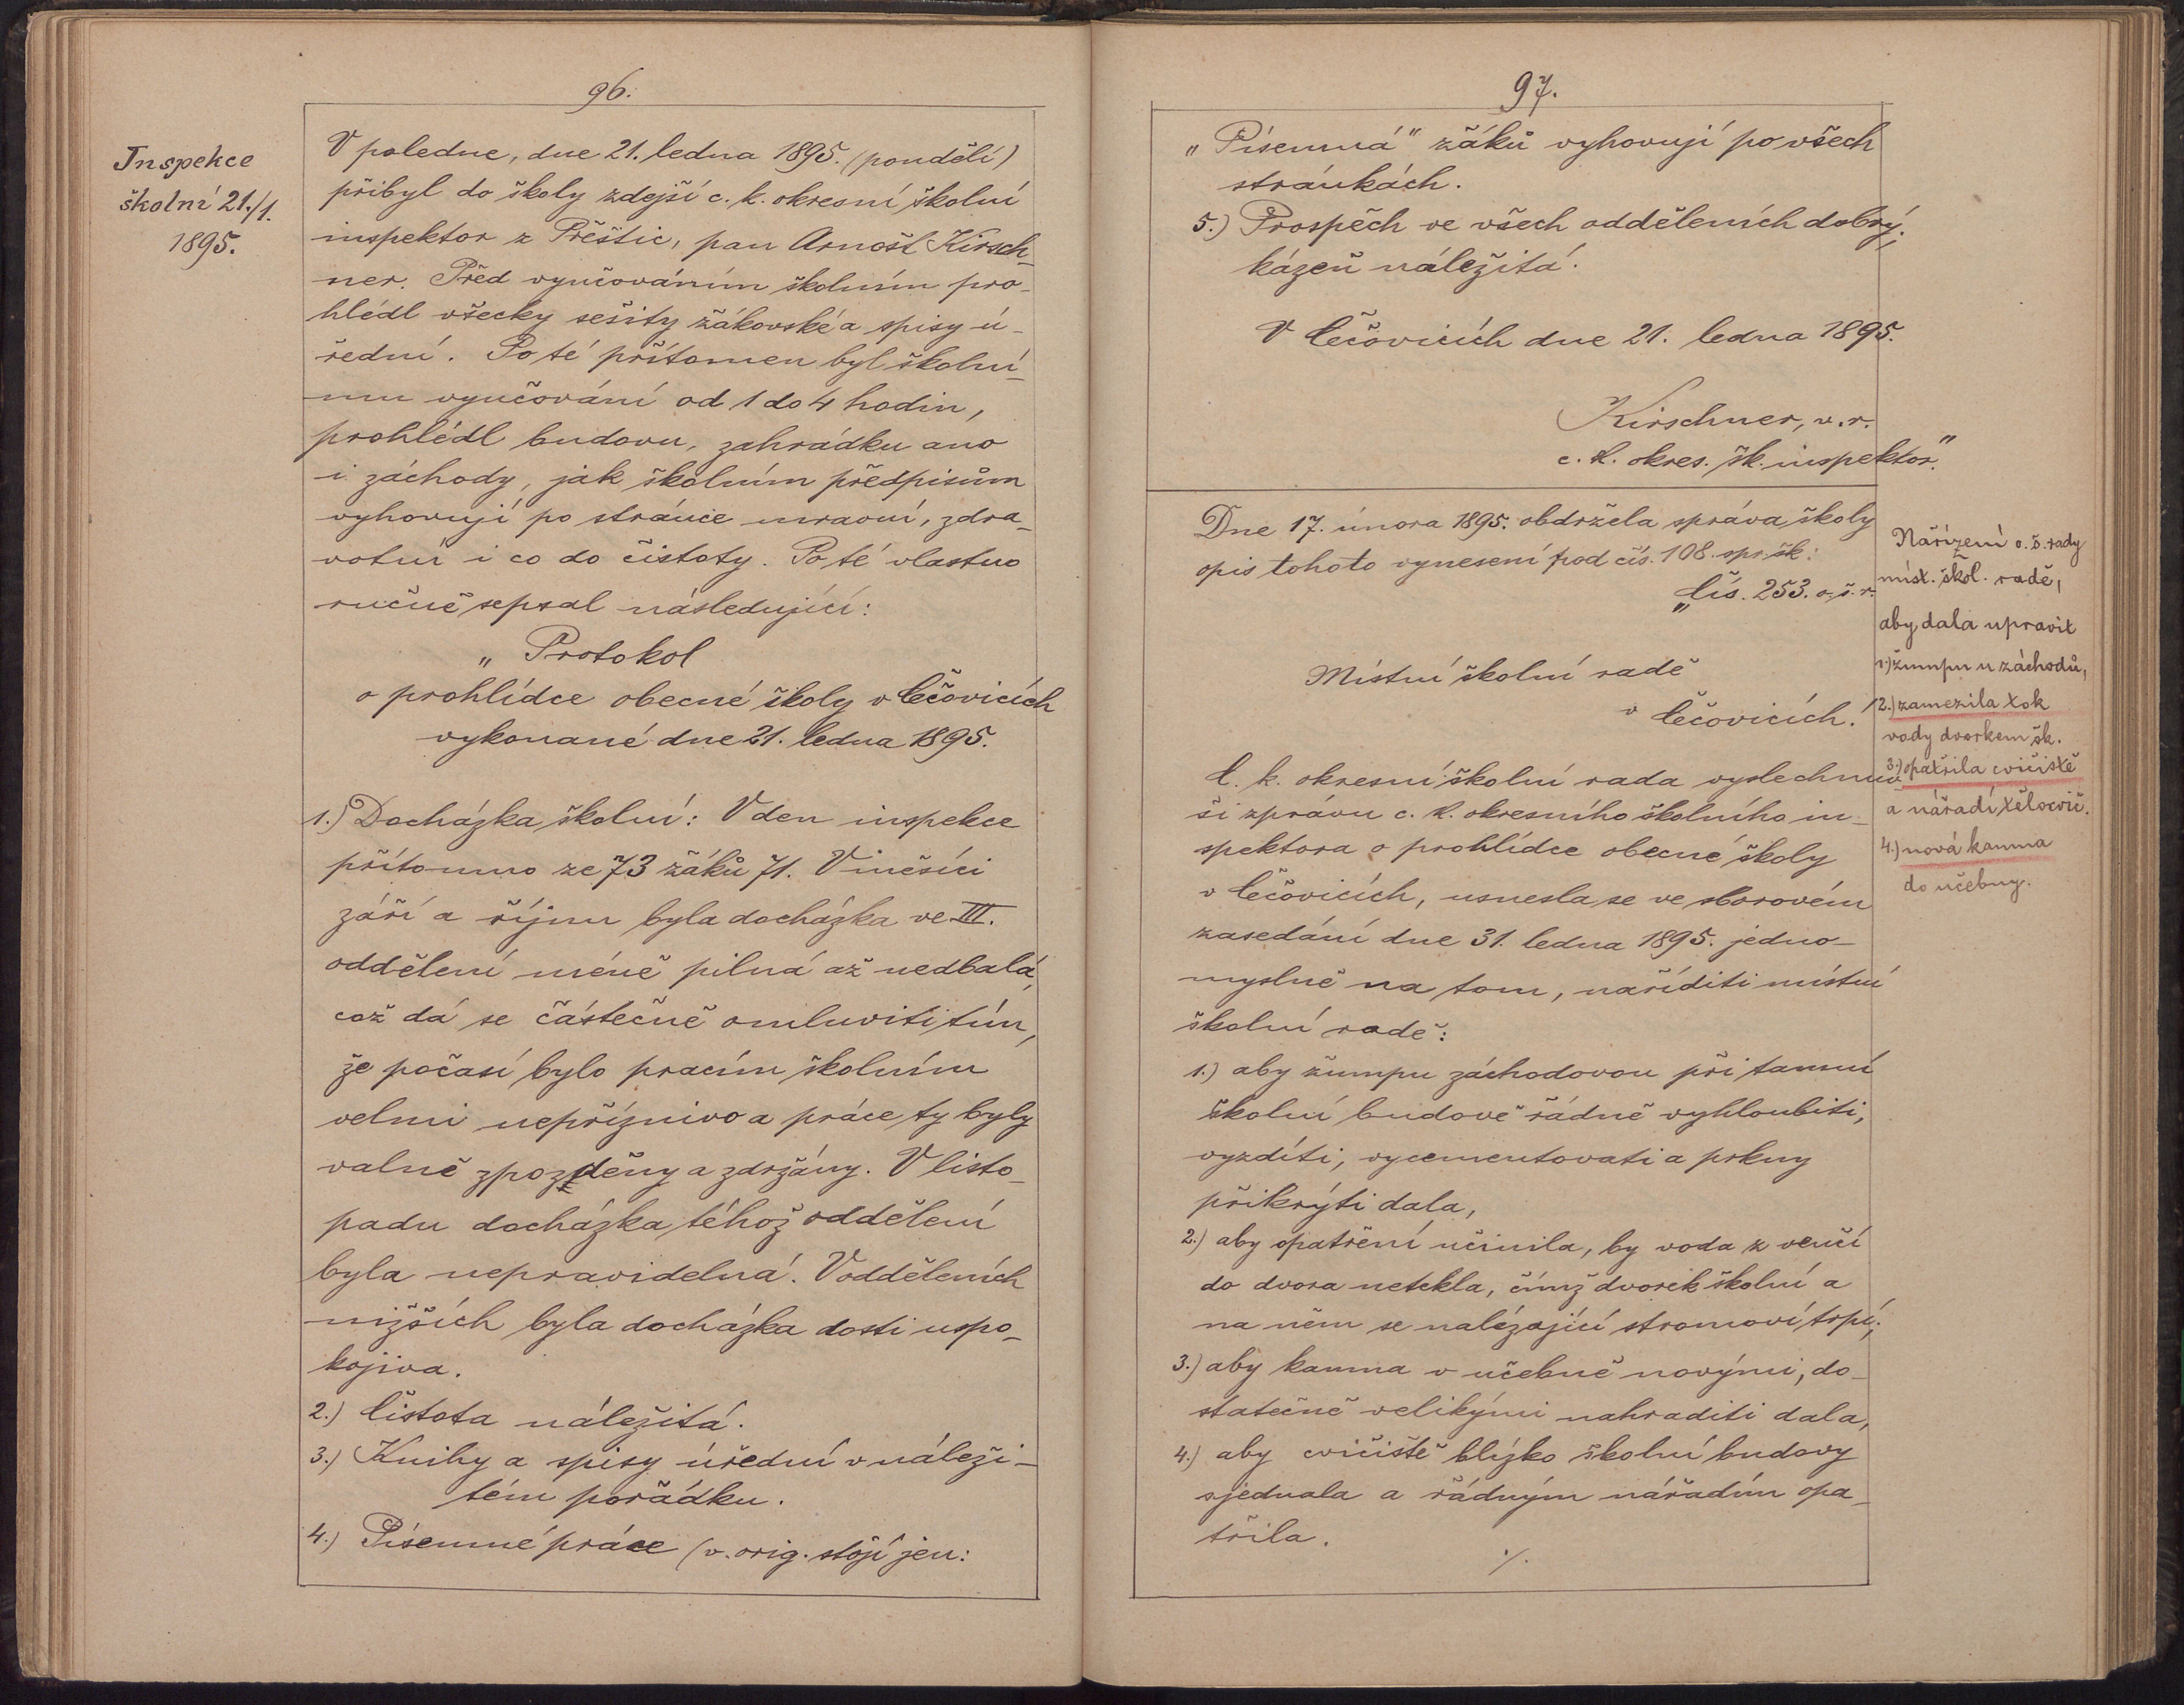 96.
Inspekce
školní 21./1.
1895.
V poledne, dne 21. ledna 1895. (pondělí)
přibyl do školy zdejší c. k. okresní školní
inspektor z Přěštic, pan Arnošt Kirsch-
ner. Před vyučováním školním pro-
hlédl všecky sešity žákovské a spisy ú-
řední. Po té přítomen byl školní-
mu vyučování od 1 do 4 hodin,
prohlédl budovu, zahrádku ano
i záchody, jak školním předpisům
vyhovují po stránce mravní, zdra-
votní i co do čistoty. Po té vlastno
ručně sepsal následující:
„Protokol
o prohlídce obecné školy v Čečovicích
vykonané dne 21. ledna 1895.
1.) Docházka školní: V den inspekce
přítomno ze 73 žáků 71. V měsíci
září a říjnu byla docházka ve III.
oddělení méně pilná až nedbalá,
což dá se částečně omluviti tím,
že počasí bylo pracím školním
velmi nepříznivo a práce ty byly
valně zpozděny a zdržány. V listo-
padu docházka téhož oddělení
byla nepravidelná. V odděleních
nižších byla docházka dosti uspo-
kojiva.
2.) Čistota náležitá.
3.) Knihy a spisy úřední v náleži-
tém pořádku.
4.) Písemné práce (v orig. stojí jen:
97.
„Písemná" žáků vyhovují po všech
stránkách.
5.) Prospěch ve všech odděleních dobrý;
kázeň náležitá.
V Čečovicích dne 21. ledna 1895.
Kirschner, v. r.
c. k. okres. šk. inspektor."
Dne 17. února 1895. obdržela správa školy
opis tohoto vynesení pod čís. 108. spr. šk:
„Čís. 253. o. š. r.
Místní školní radě
v Čečovicích!
C. k. okresní školní rada vyslechnuv-
ši zprávu c. k. okresního školního in-
spektora o prohlídce obecné školy
v Čečovicích, usnesla se ve sborovém
zasedání dne 31. ledna 1895. jedno-
myslně na tom, naříditi místní
školní radě:
1.) aby žumpu záchodovou při tamní
školní budově řádně vyhloubiti,
vyzdíti, vycementovati a prkny
přikrýti dala,
2.) aby opatření učinila, by voda z venčí
do dvora netekla, čímž dvorek školní a
na něm se nalézající stromoví trpí;
3.) aby kamna v učebně novými, do-
statečně velikými nahraditi dala,
4.) aby cvičiště blízko školní budovy
sjednala a řádným nářadím opa-
třila.
./.
Nařízení o. š. rady
míst. škol. radě,
aby dala upravit
1.) žumpu u záchodů,
2.) zamezila tok
vody dvorkem šk.
3.) opatřila cvičiště
a nářadí tělocvič.
4.) nová kamna
do učebny.